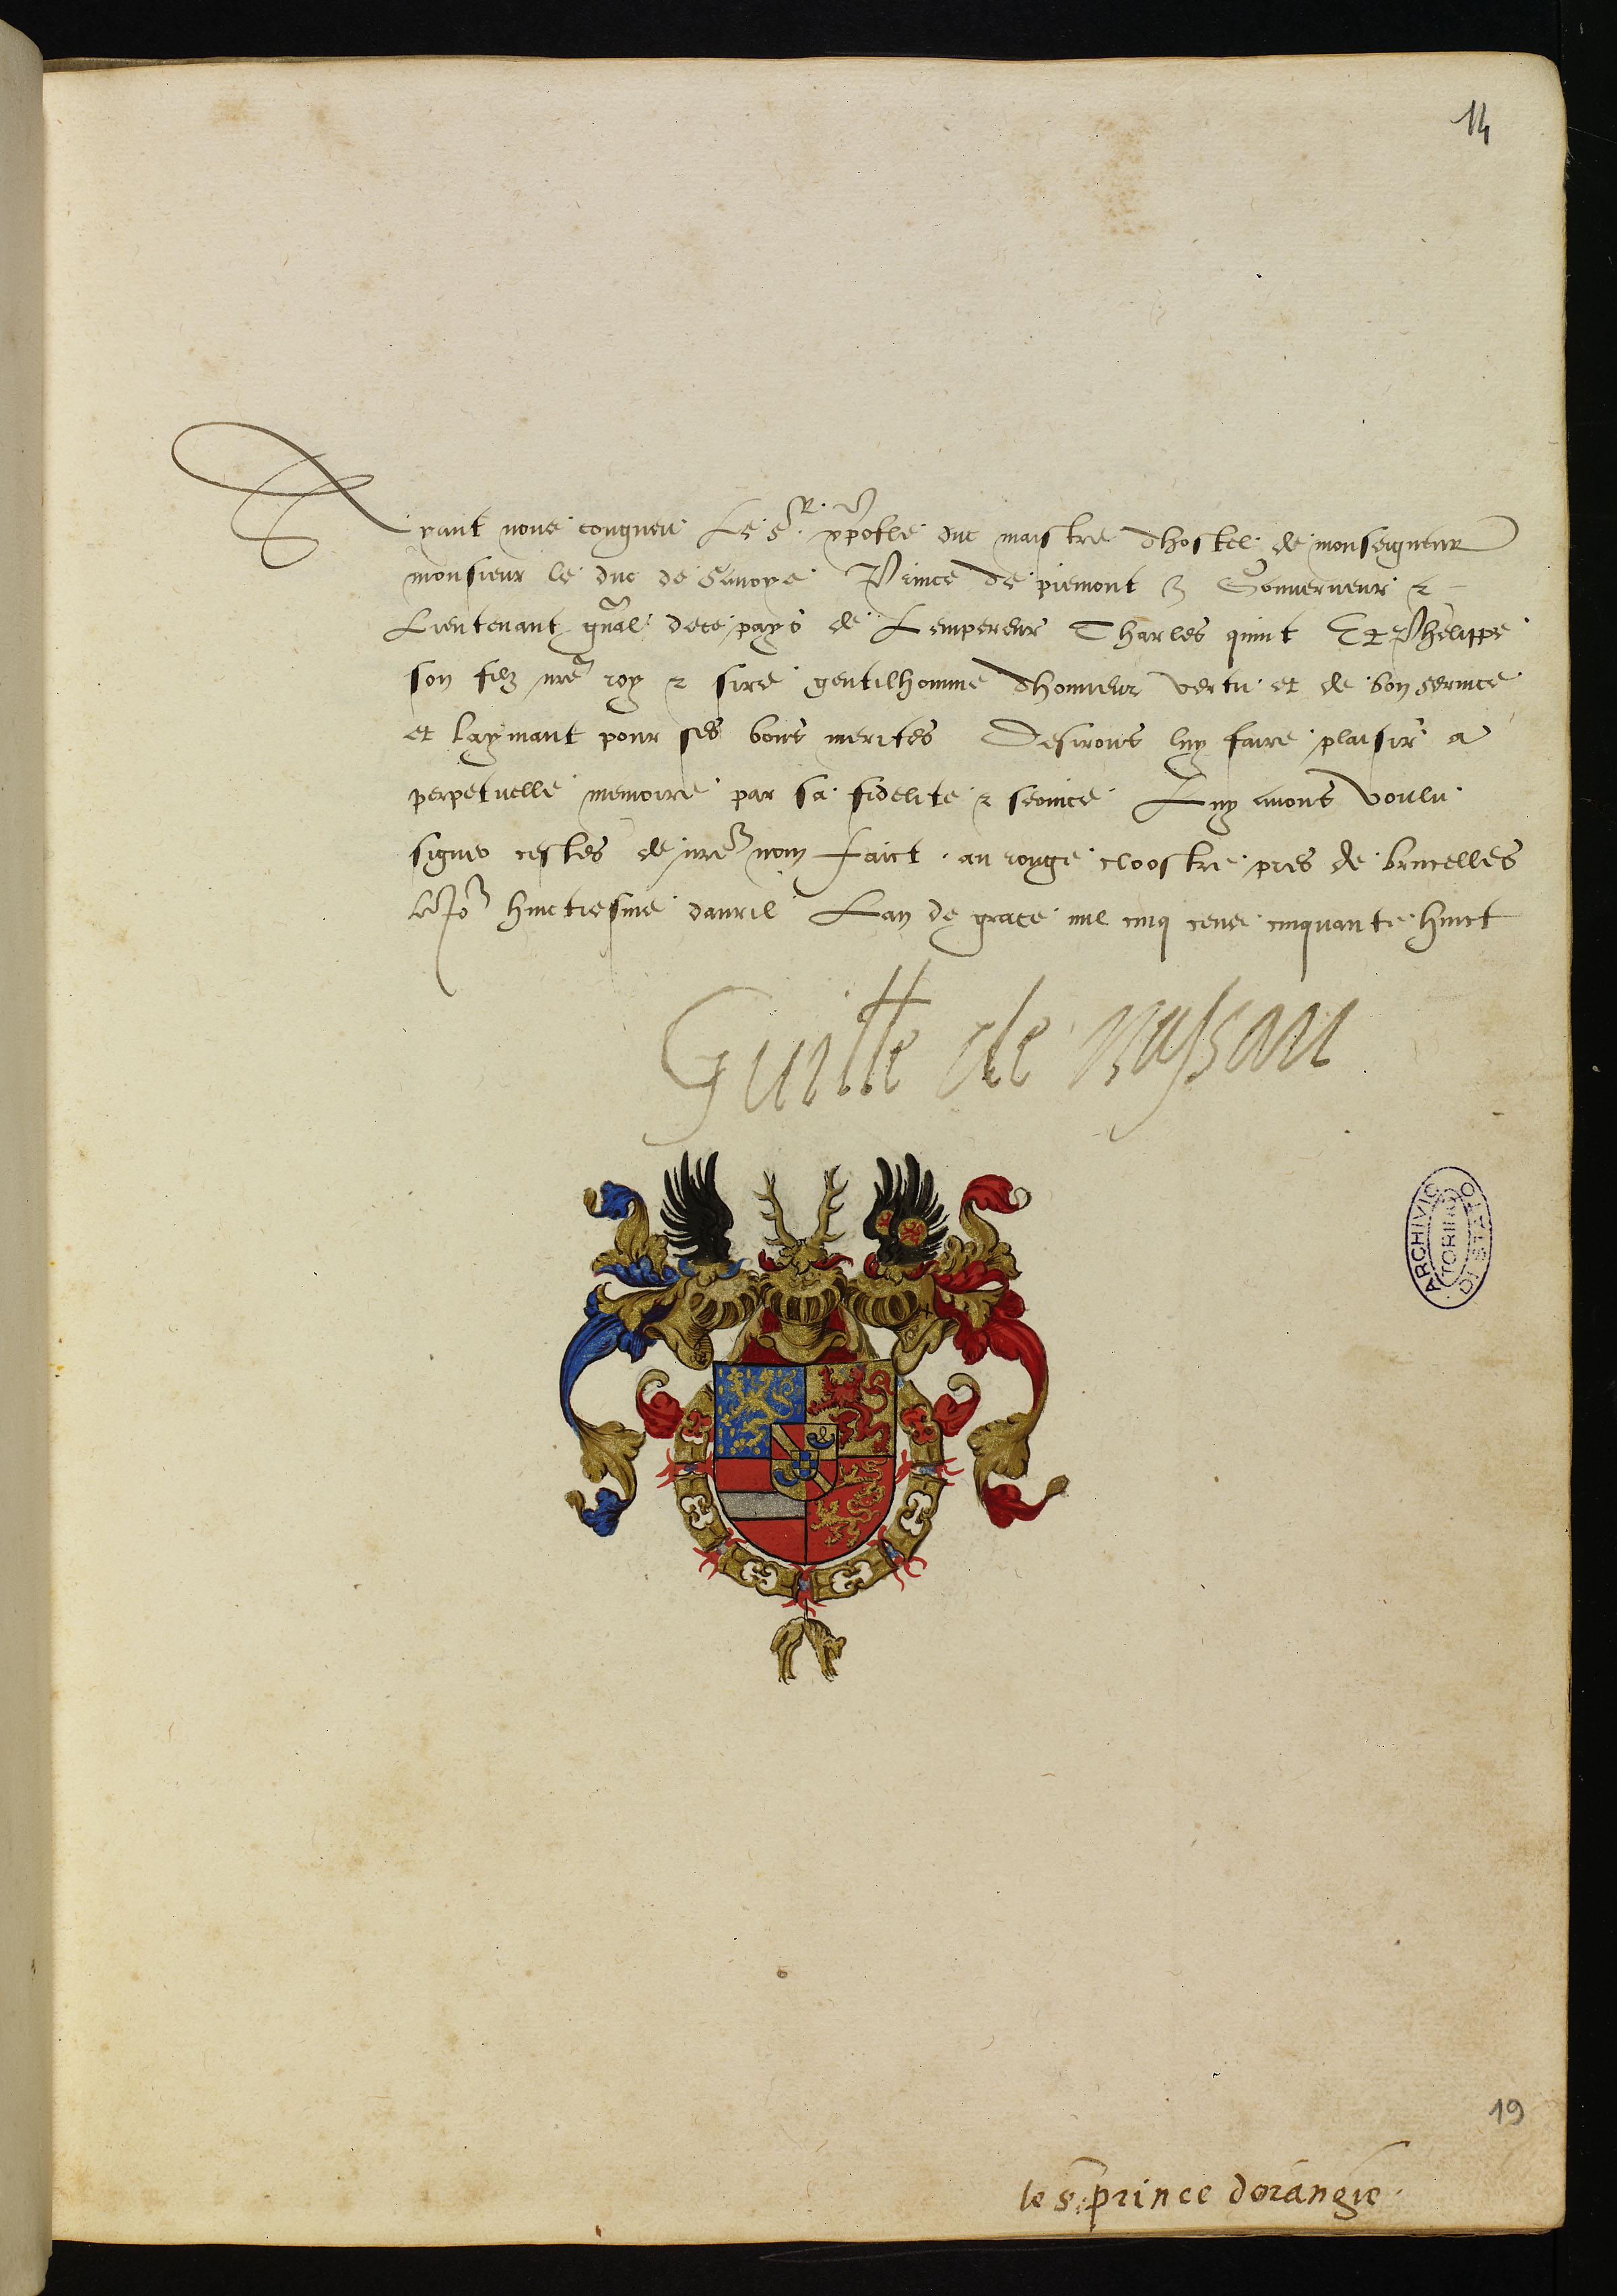 14
Ayant nous congneu Le Sr. xpofle duc maistre dhostel de monseigneur
monsieur le duc de Savoye Prince de piemont Gouverneur &
Lieutenant gnal dece pays de Lempereur Charles quint Et Phelippe
son filz nre roy & sire gentilhomme dhonneur vertu et de bon service
et laymant pour ses bons merites Desirons luy faire plaisir a
perpetuelle memoire par sa fidelite & service Luy avons voulu
signer cestes de nre nom Faict au rouge cloostre pres de brucelles
le Jo huictiesme davril Lan de grace mil cinq cens cinquante huict
Guille de nassau
ARCHIVIO DI STATO
TORINO
19
le sr prince dorangie